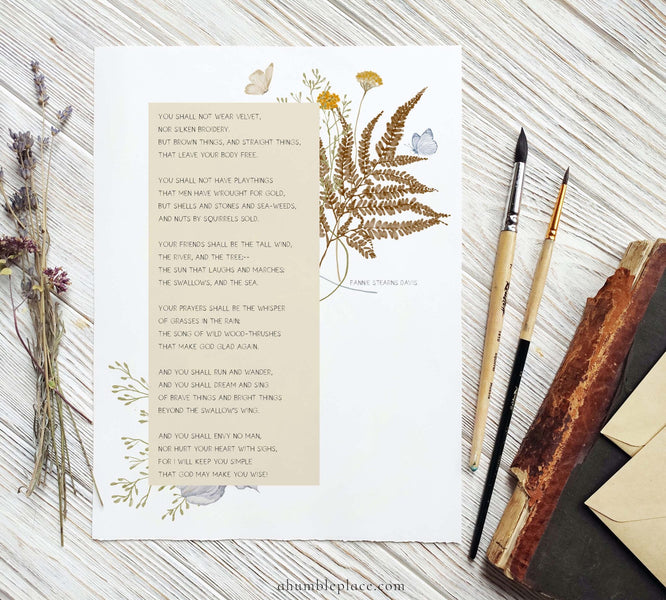 YOU SHALL NOT WEAR VELVET,
NOR SILKEN BROIDERY.
BUT BROWN THINGS, AND STRAIGHT THINGS,
THAT LEAVE YOUR BODY FREE.
YOU SHALL NOT HAVE PLAYTHINGS
THAT MEN HAVE WROUGHT FOR GOLD,
BUT SHELLS AND STONES AND SEA-WEEDS,
AND NUTS BY SQUIRRELS SOLD.
YOUR FRIENDS SHALL BE THE TALL WIND,
THE RIVER, AND THE TREE;--
THE SUN THAT LAUGHS AND MARCHES;
THE SWALLOWS; AND THE SEA.
YOUR PRAYERS SHALL BE THE WHISPER
OF GRASSES IN THE RAIN;
THE SONG OF WILD WOOD-THRUSHES
THAT MAKE GOD GLAD AGAIN.
AND YOU SHALL RUN AND WANDER,
AND YOU SHALL DREAM AND SING
OF BRAVE THINGS AND BRIGHT THINGS
BEYOND THE SWALLOW'S WING.
AND YOU SHALL ENVY NO MAN,
NOR HURT YOUR HEART WITH SIGHS,
FOR I WILL KEEP YOU SIMPLE
THAT GOD MAY MAKE YOU WISE!
FANNIE STEARNS DAVIS
ahumbleplace.com